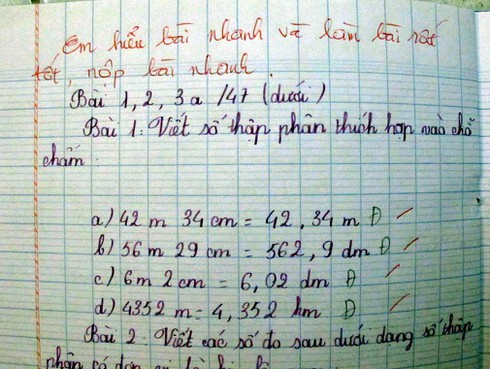 Em hiểu bài nhanh và làm bài rất
tốt, nộp bài nhanh.
Bài 1, 2, 3a /47 (dưới)
Bài 1: Viết số thập phân thích hợp vào chỗ
chấm:
a) 42 m 34 cm = 42, 34 m Đ
b) 56 m 29 cm = 562, 9 dm Đ
c) 6 m 2 cm = 6, 02 dm Đ
d) 4352 m = 4, 352 km Đ
Bài 2: Viết các số đo sau dưới dạng số thập
phân có đơn vị là